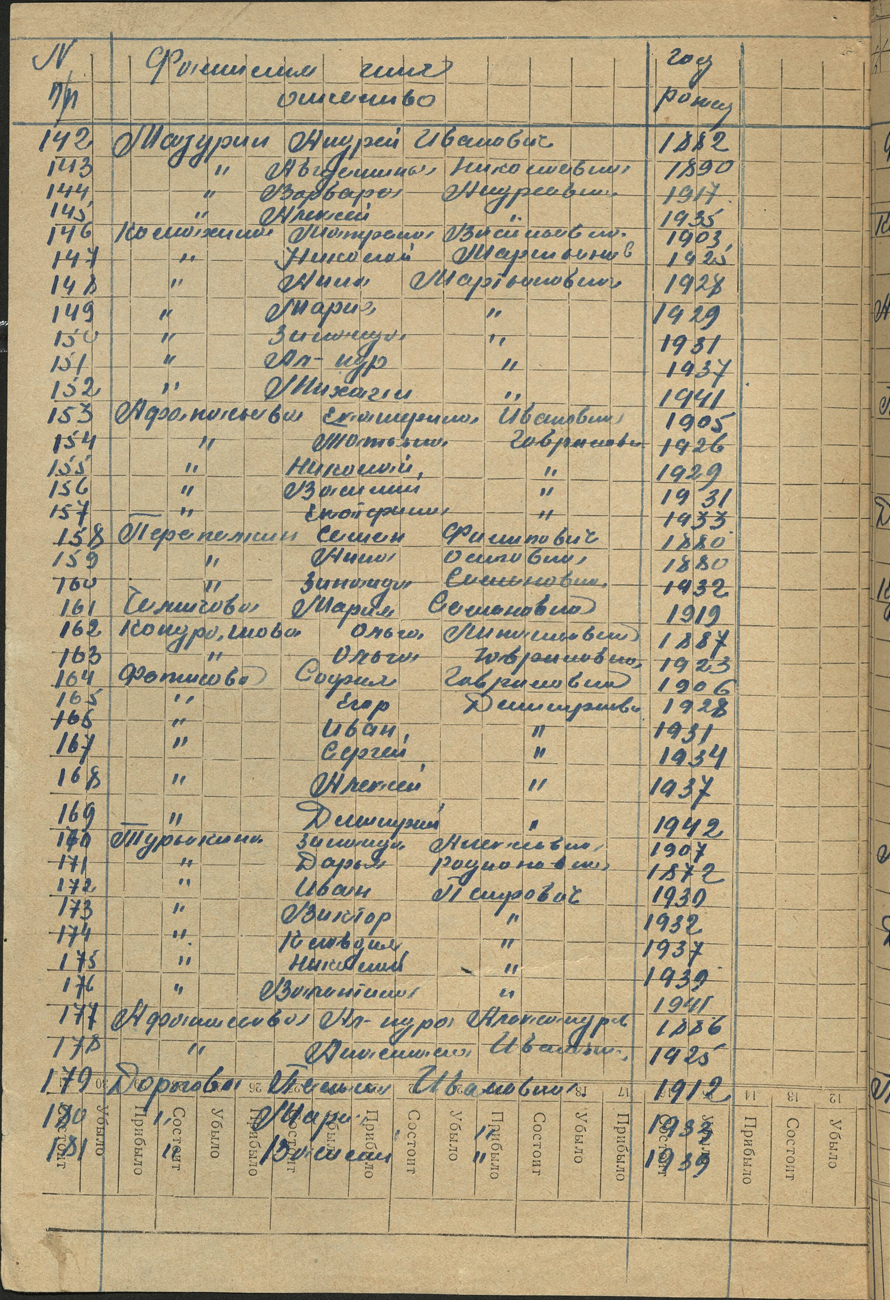 N Фамилия имя год
п/п отчество рожд
142 Мазурин Андрей Иванович 1882
143 " Авдотья Николаевна 1890
144 " Варвара Андреевна 1917
145 " Алексей 1935
146 Матрена Васильевна 1903
147 " Николай Мартынов 1925
148 " Анна Мартыновна 1928
149 " Мария " 1929
150 " Зинаида " 1931
151 " Ал-ндр " 1937
152 " Михаил " 1941
153 Афанасьева Екатерина Ивановна 1905
154 " Татьяна Гавриловн 1926
155 " Николай " 1929
156 " Василий " 1931
157 " Екатерина " 1933
158 Перепелкин Семен Филиппович 1880
159 " Анна Осиповна 1880
160 " Зинаида Семеновна 1932
161 Мария Семеновна 1919
162 Кондрашова Ольга 1887
163 " Ольга Гавриловна 1923
164 Фатисова София Гавриловна 1906
165 " Егор Дмитриеви 1928
166 " Иван " 1931
167 " Сергей " 1934
168 " Алексей " 1937
169 " Дмитрий " 1942
170 Турыкина Зинаида Алексеевна 1907
171 " Дарья Родионовна 1872
172 " Иван Петрович 1930
173 " Виктор " 1932
174 " Клавдия " 1937
175 " Николай " 1939
176 " Валентина " 1941
177 Афанасьева Ал-ндра Александров 1886
178 " Анастасия Ивановн 1925
179 Дорогова Татьяна Ивановна 1912
180 " Мария " 1933
181 " Василий " 1939
Состоит Убыло Прибыло Состоит Убыло Прибыло Состоит Убыло Прибыло Состоит Убыло Прибыло Состоит Убыло Прибыло Состоит Убыло